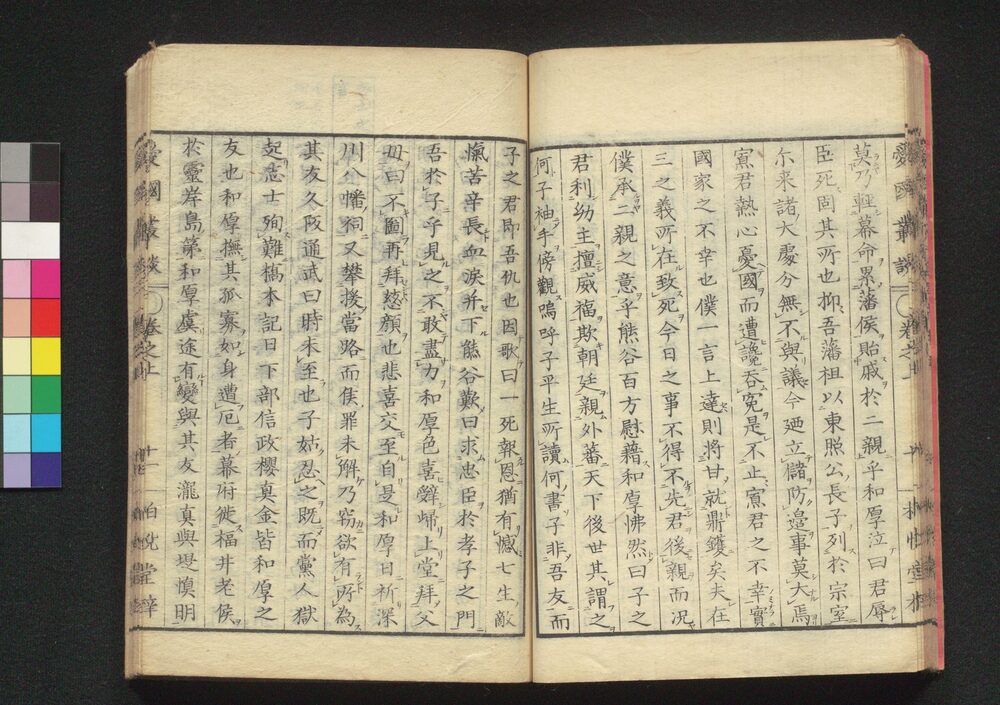 莫乃輕幕命累藩侯貽戚於二親乎和厚泣曰君辱
臣死固其所也抑吾藩祖以東照公長子列於宗室
尓来諸大處分無不與議今廼立儲防邉事莫大焉
寡君熱心憂國而遭讒吞冤是不止寡君之不幸實
國家之不幸也僕一言上達則將甘就鼎鑊矣夫在
三之義所在致死今日之事不得不先君後親而況
僕承二親之意乎熊谷百方慰藉和厚怫然曰子之
君利幼主擅威福欺朝廷親外蕃天下後世其謂之
何子袖手傍觀嗚呼子平生所讀何書子非吾友而
子之君即吾仇也因歌曰一死報恩猶有憾七生敵
愾苦辛長血淚并下熊谷歎曰求忠臣於孝子之門
吾於子乎見之不敢盡力和厚色喜辭歸上堂拜父
母曰不圖再拜慈顔也悲喜交至自是和厚日祈深
川八幡祠又攀援當路而俟罪未解乃窃欲有所為
其友久阪通武曰時未至也子姑忍之既而黨人獄
起志士殉難槁本記日下部信政櫻真金皆和厚之
友也和厚撫其孤寡如身遭厄者幕府徙福井老侯
於靈岸島第和厚虞途有變與其友瀧真與堤慎明
愛國叢談 卷之上
愛國叢談 卷之上 十一